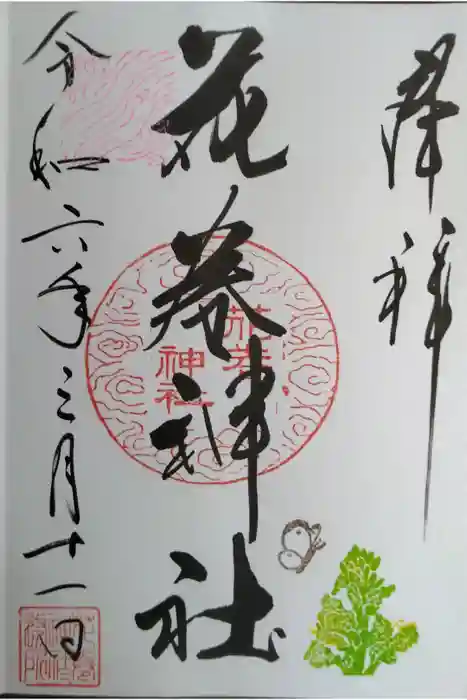 奉拝
花巻神社
花巻
神社
令和六年三月十一日